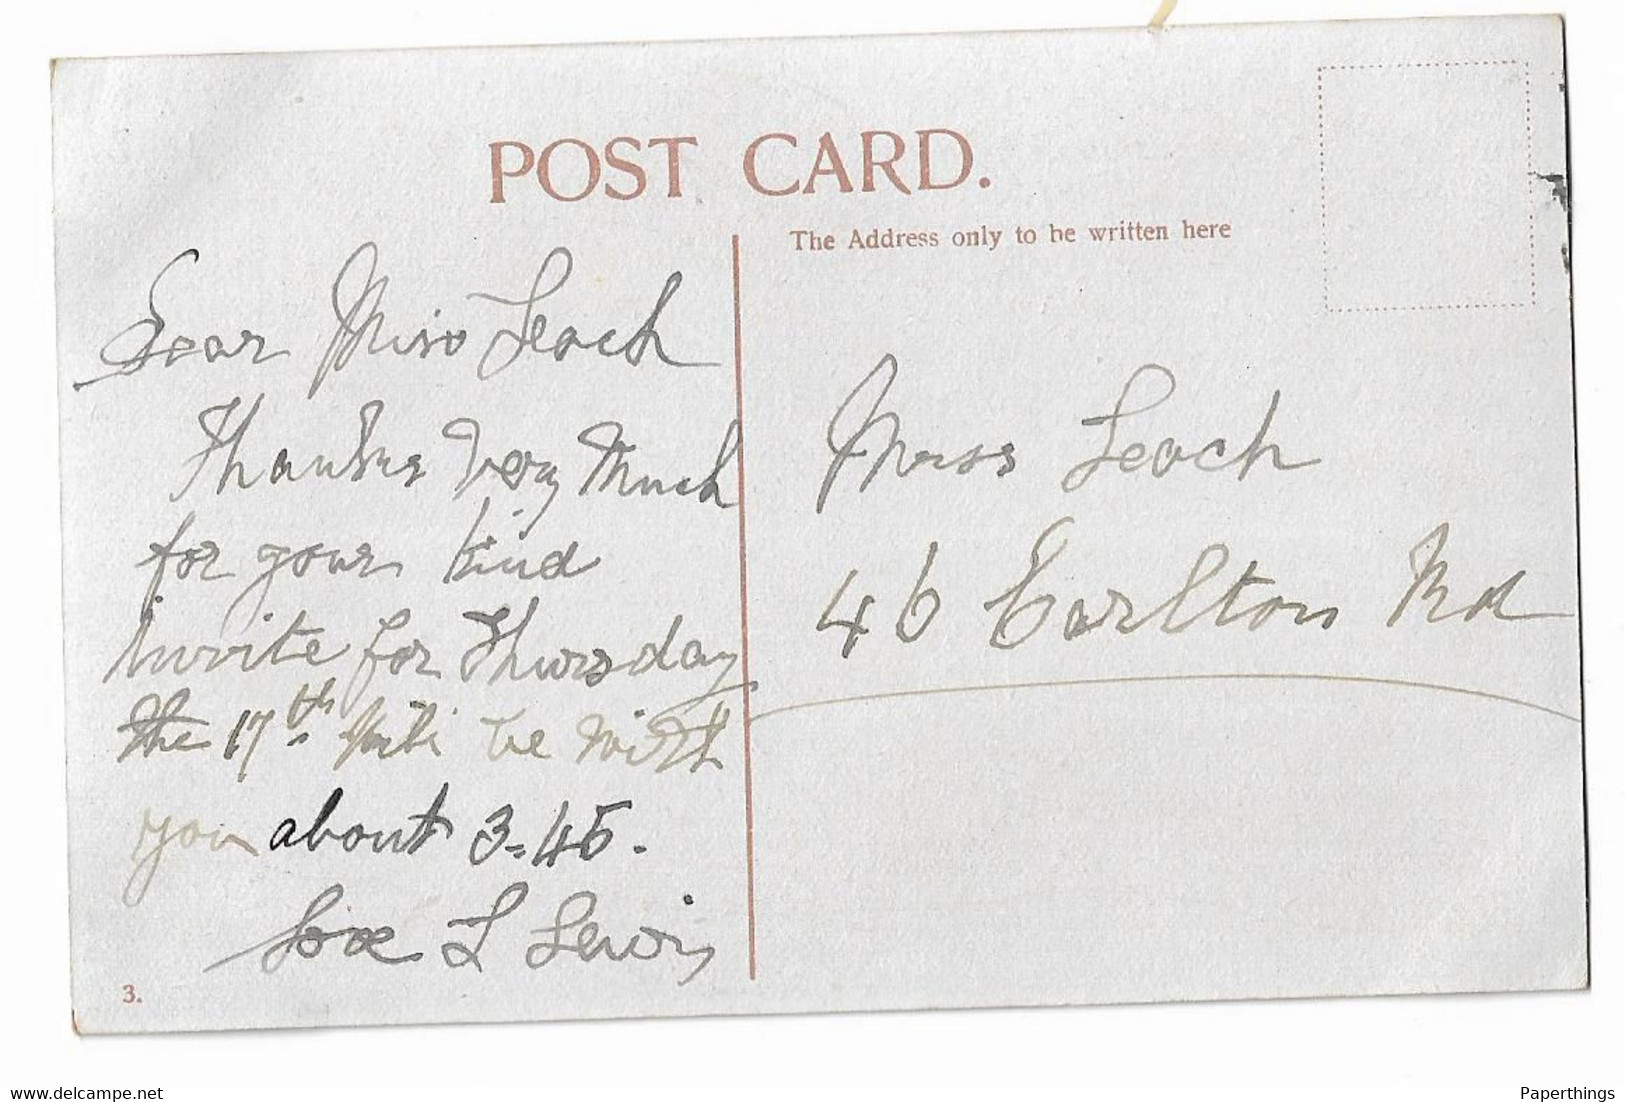 POST CARD.
The Address only to be written here
Dear Miss Leach
Thanks Very Much
for your kind
invite for Thursday
the 17th be with
you about 3-45.
L Lewis
3.
Miss Leach
46 Earlton Rd
www.delcampe.net
Paperthings